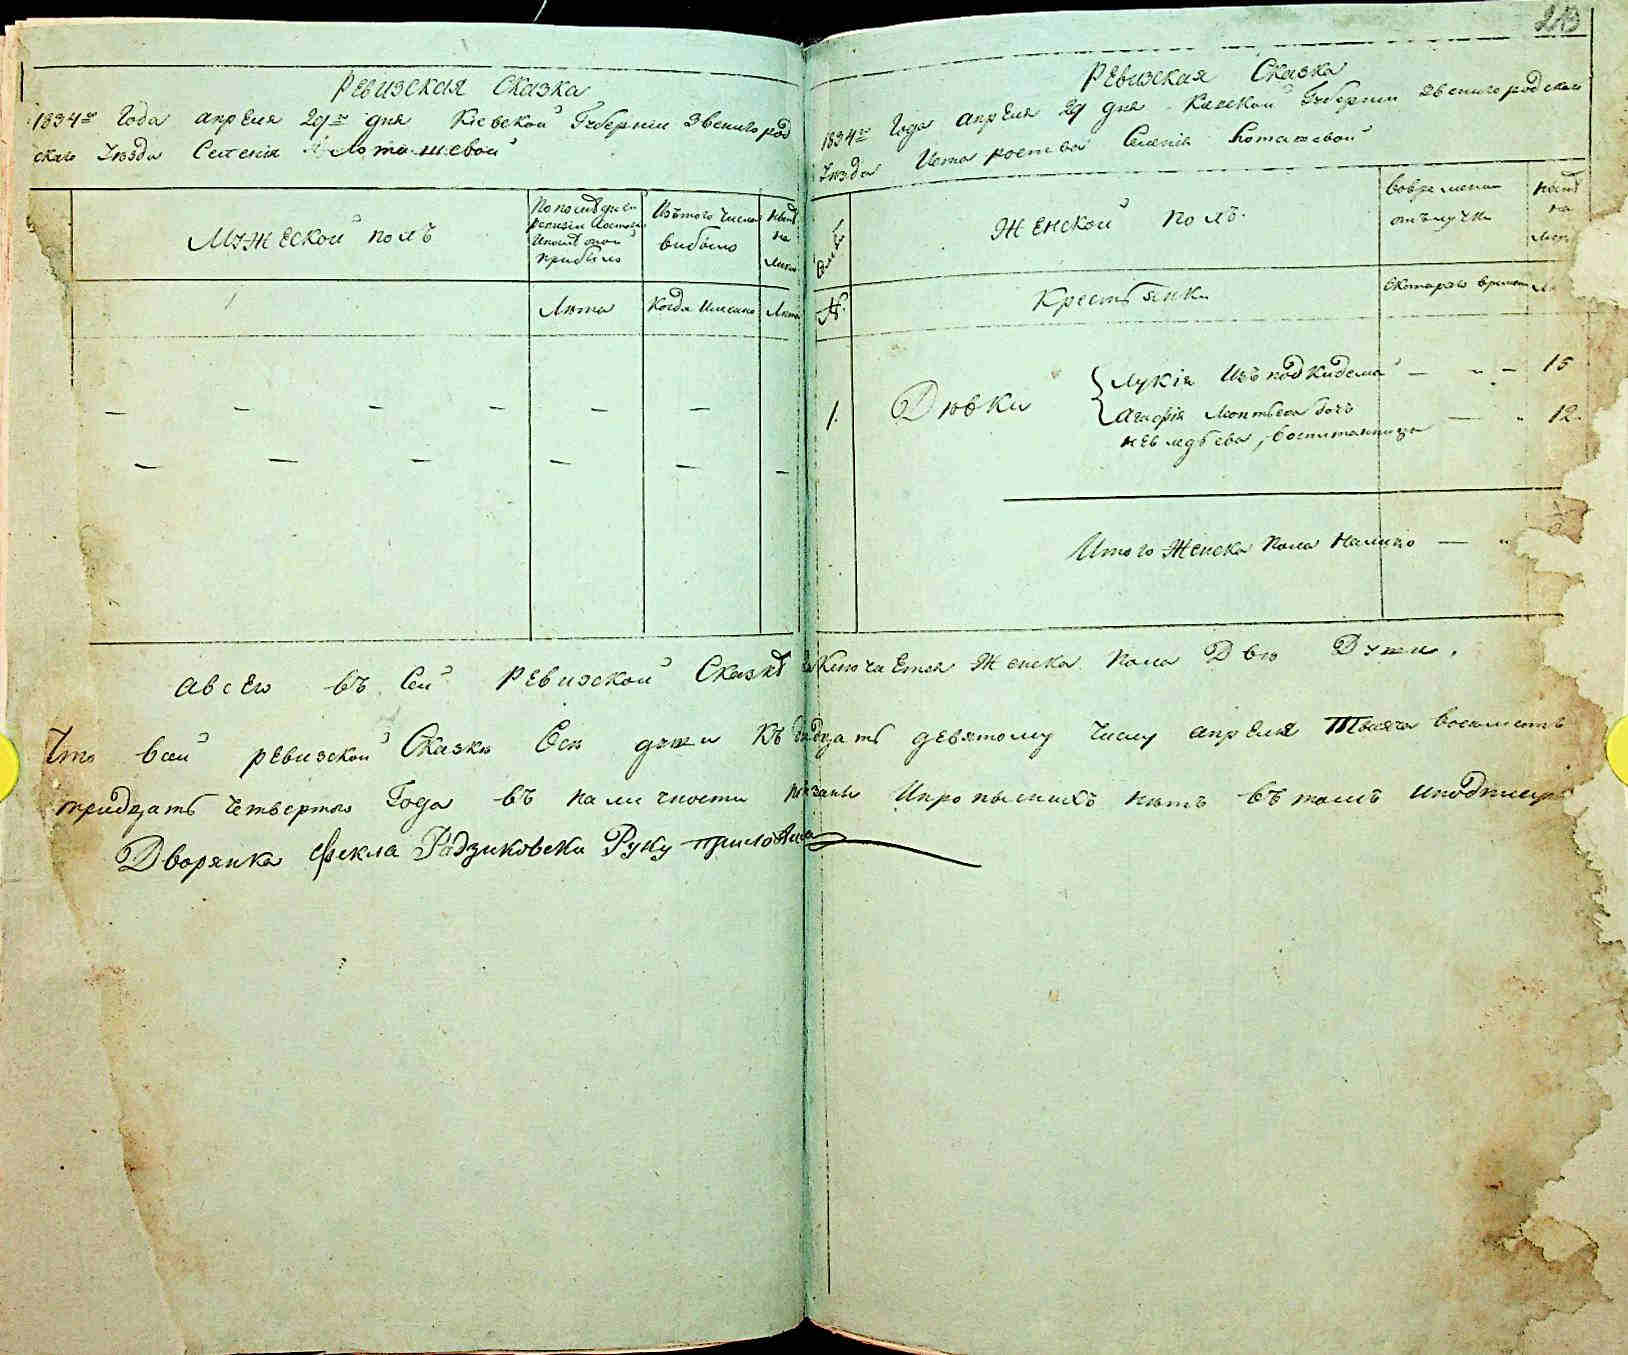 Ревизская Сказка
1834го Года апреля 29го дня Кіевской Губерніи Звенигород
скаго уѣзда Селенія
Мужеской полъ
По последней ревизіи состояло и после оной прибыло
Изътого числа выбыло
ныне на лицо
Лѣта
Когда именно
Лѣта
213
Ревизская Сказка
1834го Года апреля 29 дня Кіевской Губерніи Звенигородскаго
уѣзда Селенія
Женской полъ
Вовременной отълучке
ныне на лицо
№
Крестьянки
Скотораго времени
1. Дѣвки
Лукія Изъ подкидела — „ — 15
Агафія — „ 12
воспитанница
Итого Женска пола налицо — „
авсего въ Сей Ревизской Сказкѣ заключается Женска пола Две Души.
Что всей ревизской Сказке Все души къ двадцать девятому числу апреля Тысяча восемъсотъ
тридцать четвертого Года въ наличности показаны Ипрописныхъ нетъ въ томъ
Дворянка Фекла Радзиковска Руку приложила